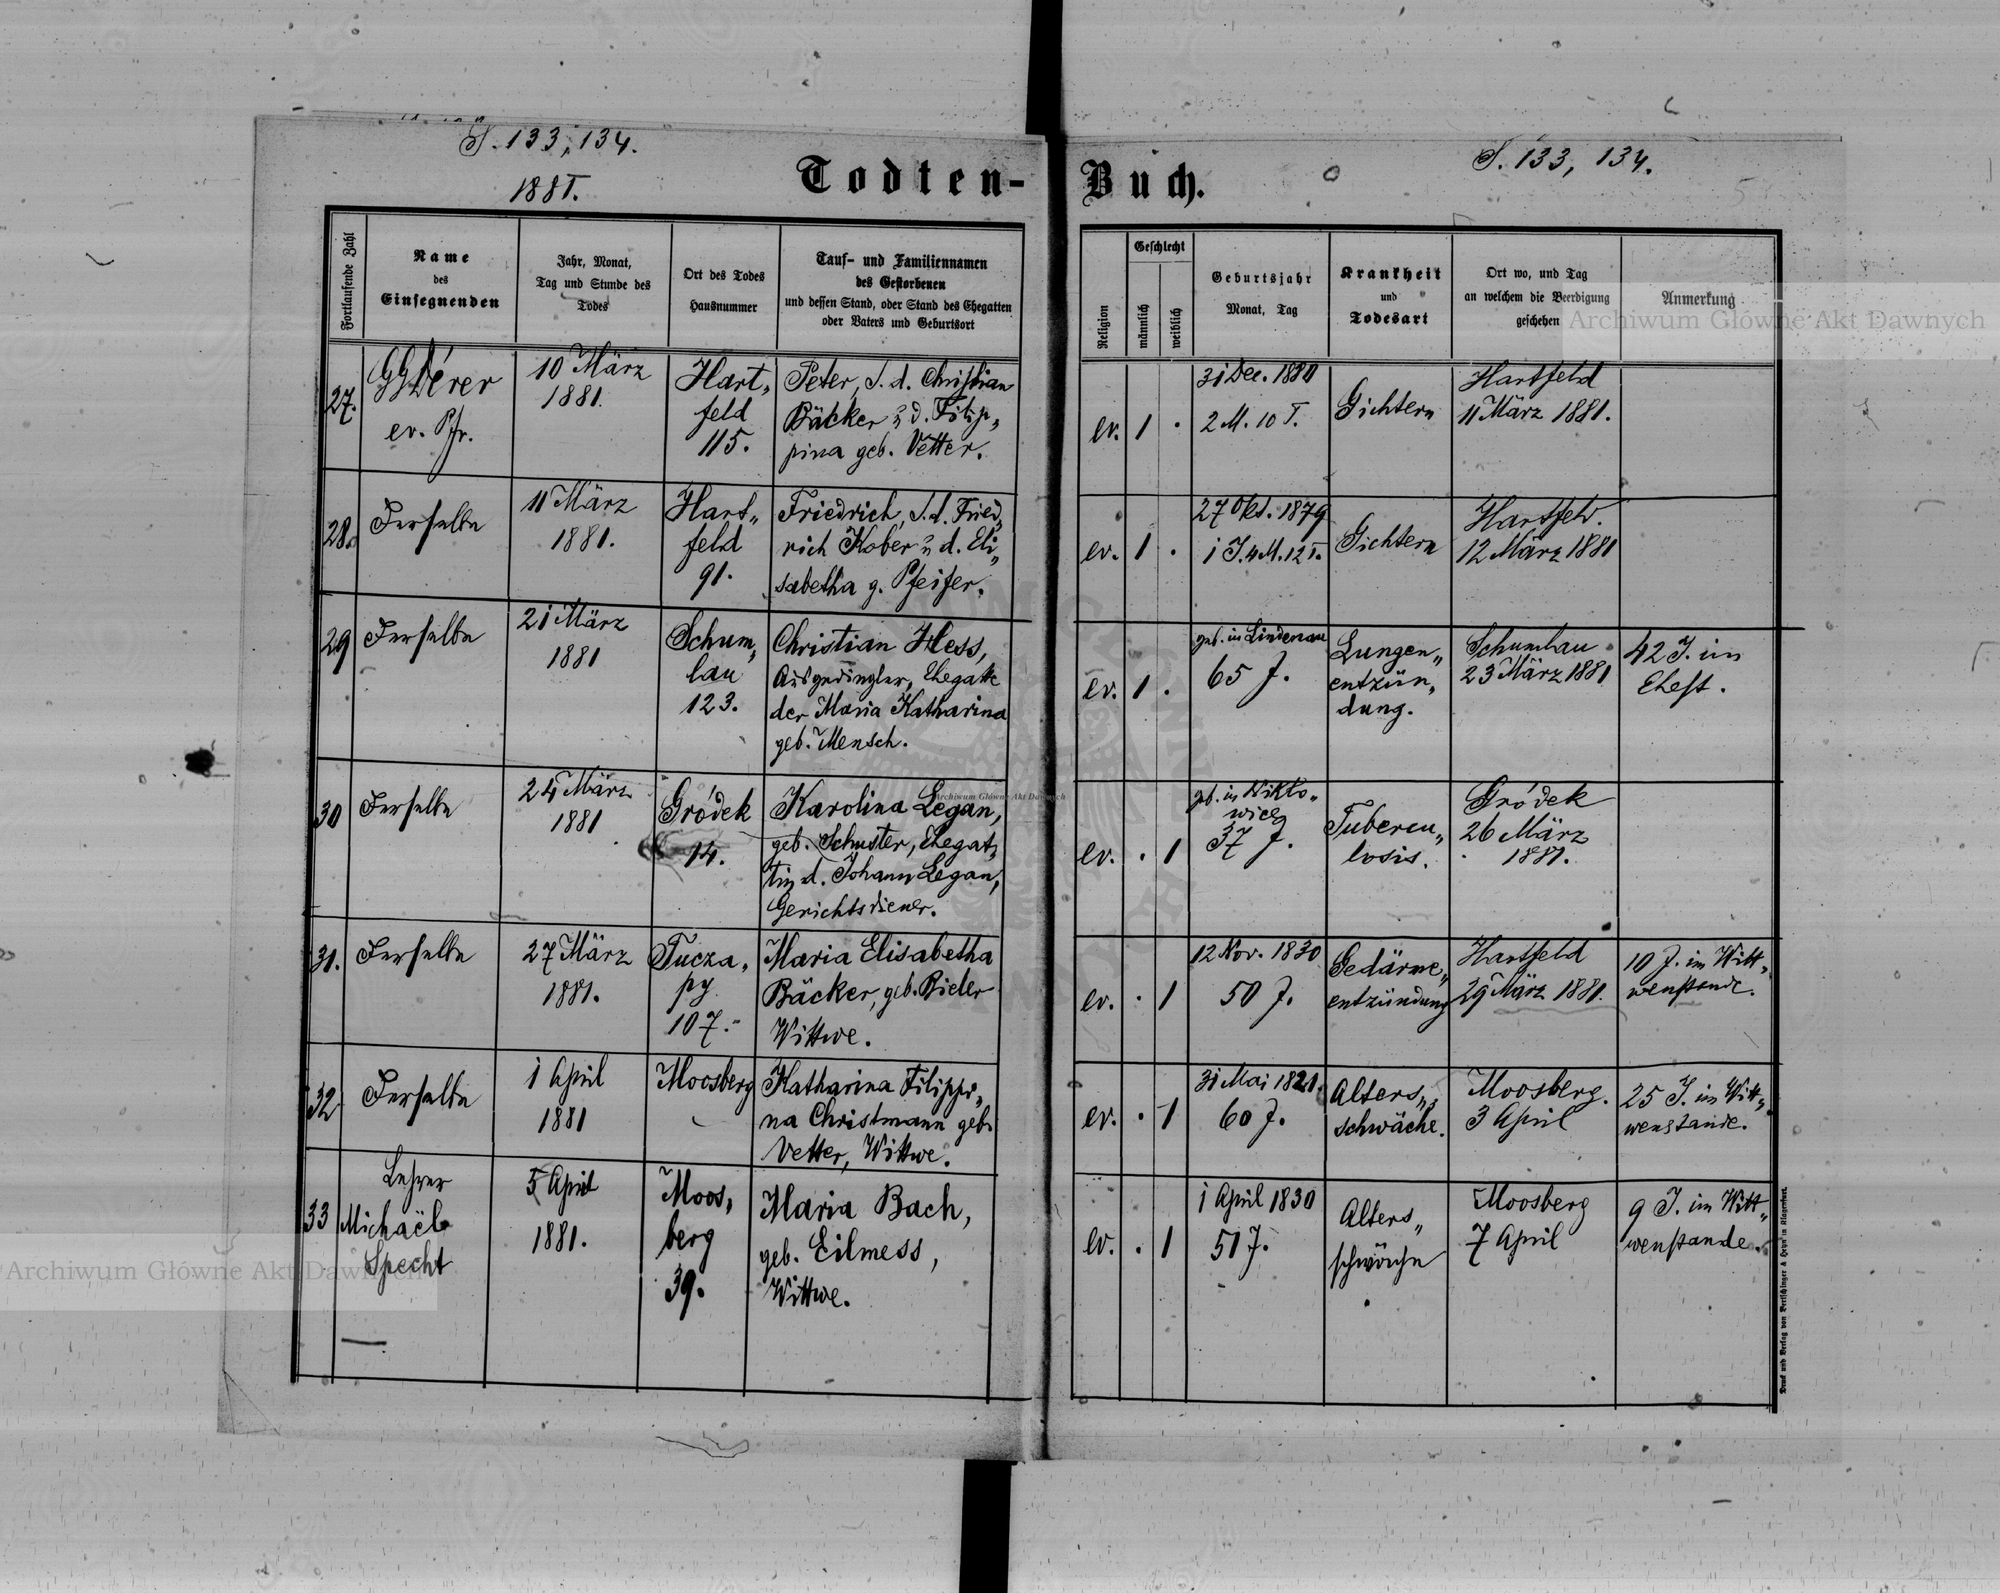 S. 133, 134.
1881.
Todten-
Buch.
S. 133, 134.
Fortlaufende Zahl
Name
des
Einsegnenden
Jahr, Monat,
Tag und Stunde des
Todes
Ort des Todes
Hausnummer
Tauf- und Familiennamen
des Gestorbenen
und dessen Stand, oder Stand des Ehegatten
oder Vaters und Geburtsort
Religion
Geschlecht
männlich
weiblich
Geburtsjahr
Monat, Tag
Krankheit
und
Todesart
Ort wo, und Tag
an welchem die Beerdigung
geschehen
Anmerkung
Archiwum Główne Akt Dawnych
27.
Dérer
ev. Pfr.
10 März
1881.
Hart„
feld
115.
Peter, S. d. Christian
Bäcker u. d. Filip„
pina geb. Vetter.
ev. 1 .
31 Dec. 1880
2 M. 10 T.
Gichtern
Hartfeld
11 März 1881.
28.
Derselbe
11 März
1881.
Hart„
feld
91.
Friedrich, S. d. Fried„
rich Kober u. d. Eli„
sabetha g. Pfeifer.
ev. 1 .
27 Okt. 1879
1 J. 4 M. 12 T.
Gichtern
Hartfeld.
12 März 1881
29
Derselbe
21 März
1881
Schum„
lau
123.
Christian Hess,
Ausgedingler, Ehegatte
der Maria Katharina
geb. Mensch.
ev. 1 .
geb. in Lindenau
65 J.
Lungen„
entzün„
dung.
Schumlau
23 März 1881
42 J. im
Ehest.
30
Derselbe
24 März
1881
Gródek
14.
Karolina Legan,
geb. Schuster, Ehegat„
tin d. Johann Legan,
Gerichtsdiener.
ev. . 1
geb. in Wikto„
wice
37 J.
Tubercu„
losis.
Gródek
26 März
1881.
31.
Derselbe
27 März
1881.
Tucza„
py
107.
Maria Elisabetha
Bäcker, geb. Bieler
Wittwe.
ev. . 1
12 Nov. 1830
50 J.
Gedärme„
entzündung
Hartfeld
29 März 1881.
10 J. im Witt„
wenstande.
32
Derselbe
1 April
1881
Moosberg
Katharina Filippi„
na Christmann geb.
Vetter, Wittwe.
ev. . 1
31 Mai 1821.
60 J.
Alters„
schwäche.
Moosberg.
3 April
25 J. im Witt„
wenstande.
33
Lehrer
Michaël
Specht
5 April
1881.
Moos„
berg
39.
Maria Bach,
geb. Eilmess,
Wittwe.
ev. . 1
1 April 1830
51 J.
Alters„
schwäche
Moosberg
7 April
9 J. im Witt„
wenstande.
Archiwum Główne Akt Dawnych
Archiwum Główne Akt Dawnych
Druck und Verlag von Bertschinger & Heyn in Klagenfurt.